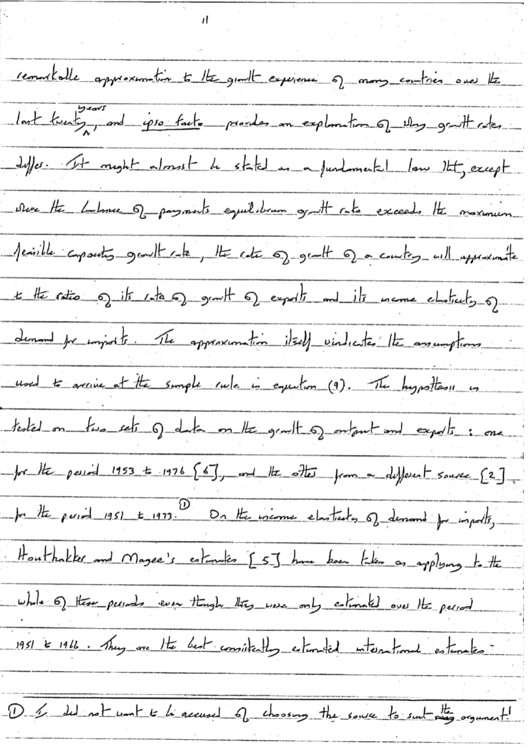 11
remarkable approximation to the growth experience of many countries over the
last twenty years, and ipso facto provides an explanation of why growth rates
differ. It might almost be stated as a fundamental law that, except
where the balance of payments equilibrium growth rate exceeds the maximum
feasible capacity growth rate, the rate of growth of a country will approximate
to the ratio of its rate of growth of exports and its income elasticity of
demand for imports. The approximation itself vindicates the assumptions
used to arrive at the simple rule in equation (9). The hypothesis is
tested on two sets of data on the growth of output and exports : one
for the period 1953 to 1976 [6], and the other from a different source [2]
for the period 1951 to 1973.① On the income elasticity of demand for imports,
Houthakker and Magee's estimates [5] have been taken as applying to the
whole of these periods even though they were only estimated over the period
1951 to 1966. They are the best consistently estimated international estimates
① I did not want to be accused of choosing the source to suit the argument!